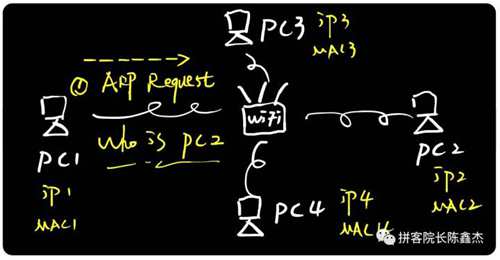 PC3
ip3
MAC3
① ARP Request
WiFi
who is PC2
PC1
ip1
MAC1
PC2
ip2
MAC2
PC4
ip4
MAC4
拼客院长陈鑫杰